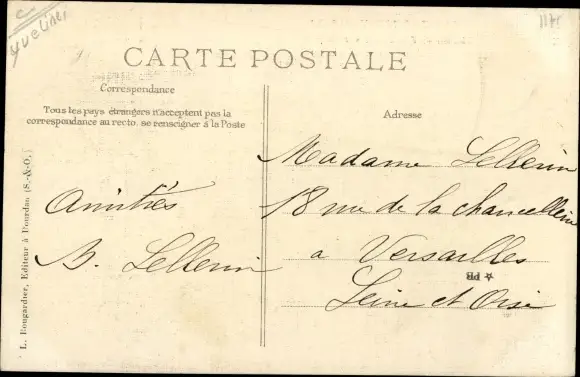 Yvelines
CARTE POSTALE
Correspondance
Tous les pays étrangers n'acceptent pas la
correspondance au recto, se renseigner à la Poste
Adresse
Amitiés
B. Lellerin
Madame Lellerin
18 rue de la chancellerie
a Versailles
Seine et Oise
L. Bougardier, Editeur à Dourdan (S.-&-O.)